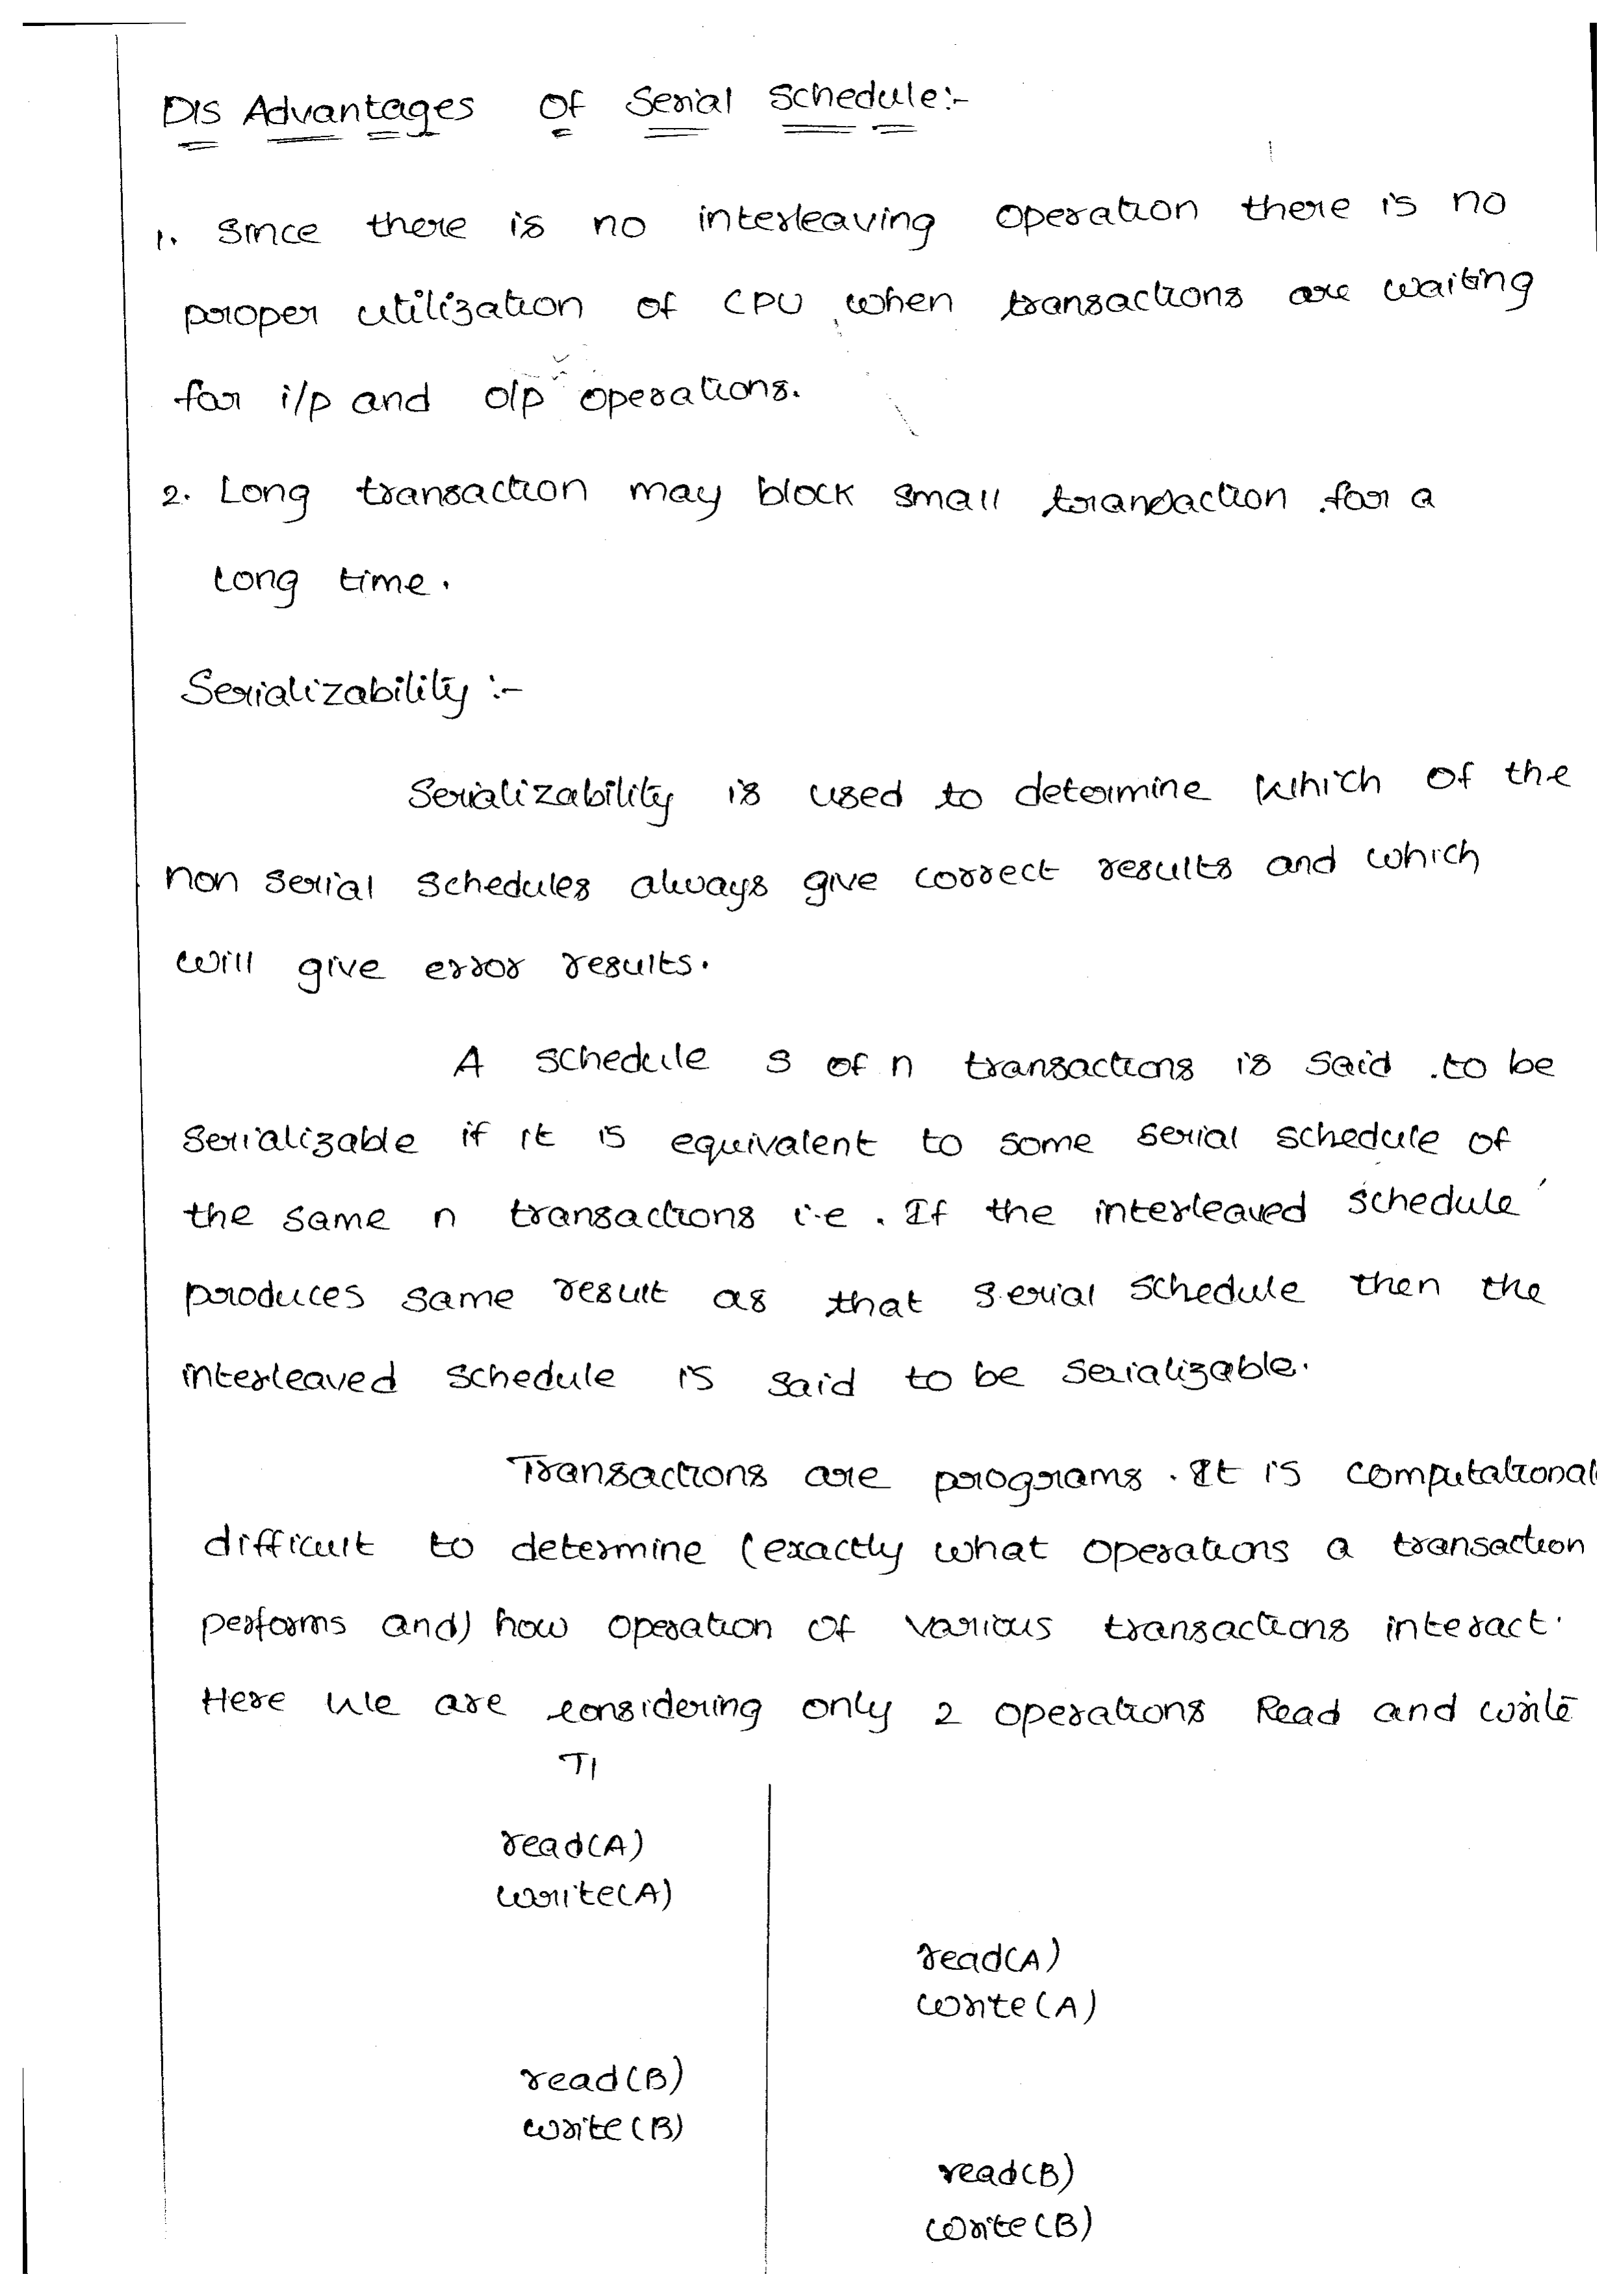 Dis Advantages Of Serial Schedule:-
1. Since there is no interleaving operation there is no
proper utilization of CPU when transactions are waiting
for i/p and o/p operations.
2. Long transaction may block small transaction for a
Long time.
Serializability :-
Serializability is used to determine which of the
non serial schedules always give correct results and which
will give error results.
A schedule S of n transactions is said to be
Serializable if it is equivalent to some serial schedule of
the same n transactions i.e. If the interleaved schedule
produces same result as that serial schedule then the
interleaved schedule is said to be serializable.
Transactions are programs. It is computational
difficult to determine (exactly what operations a transaction
performs and) how operation of various transactions interact.
Here we are considering only 2 operations Read and write
T1
read(A)
write(A)
read(A)
write(A)
read(B)
write(B)
read(B)
write(B)